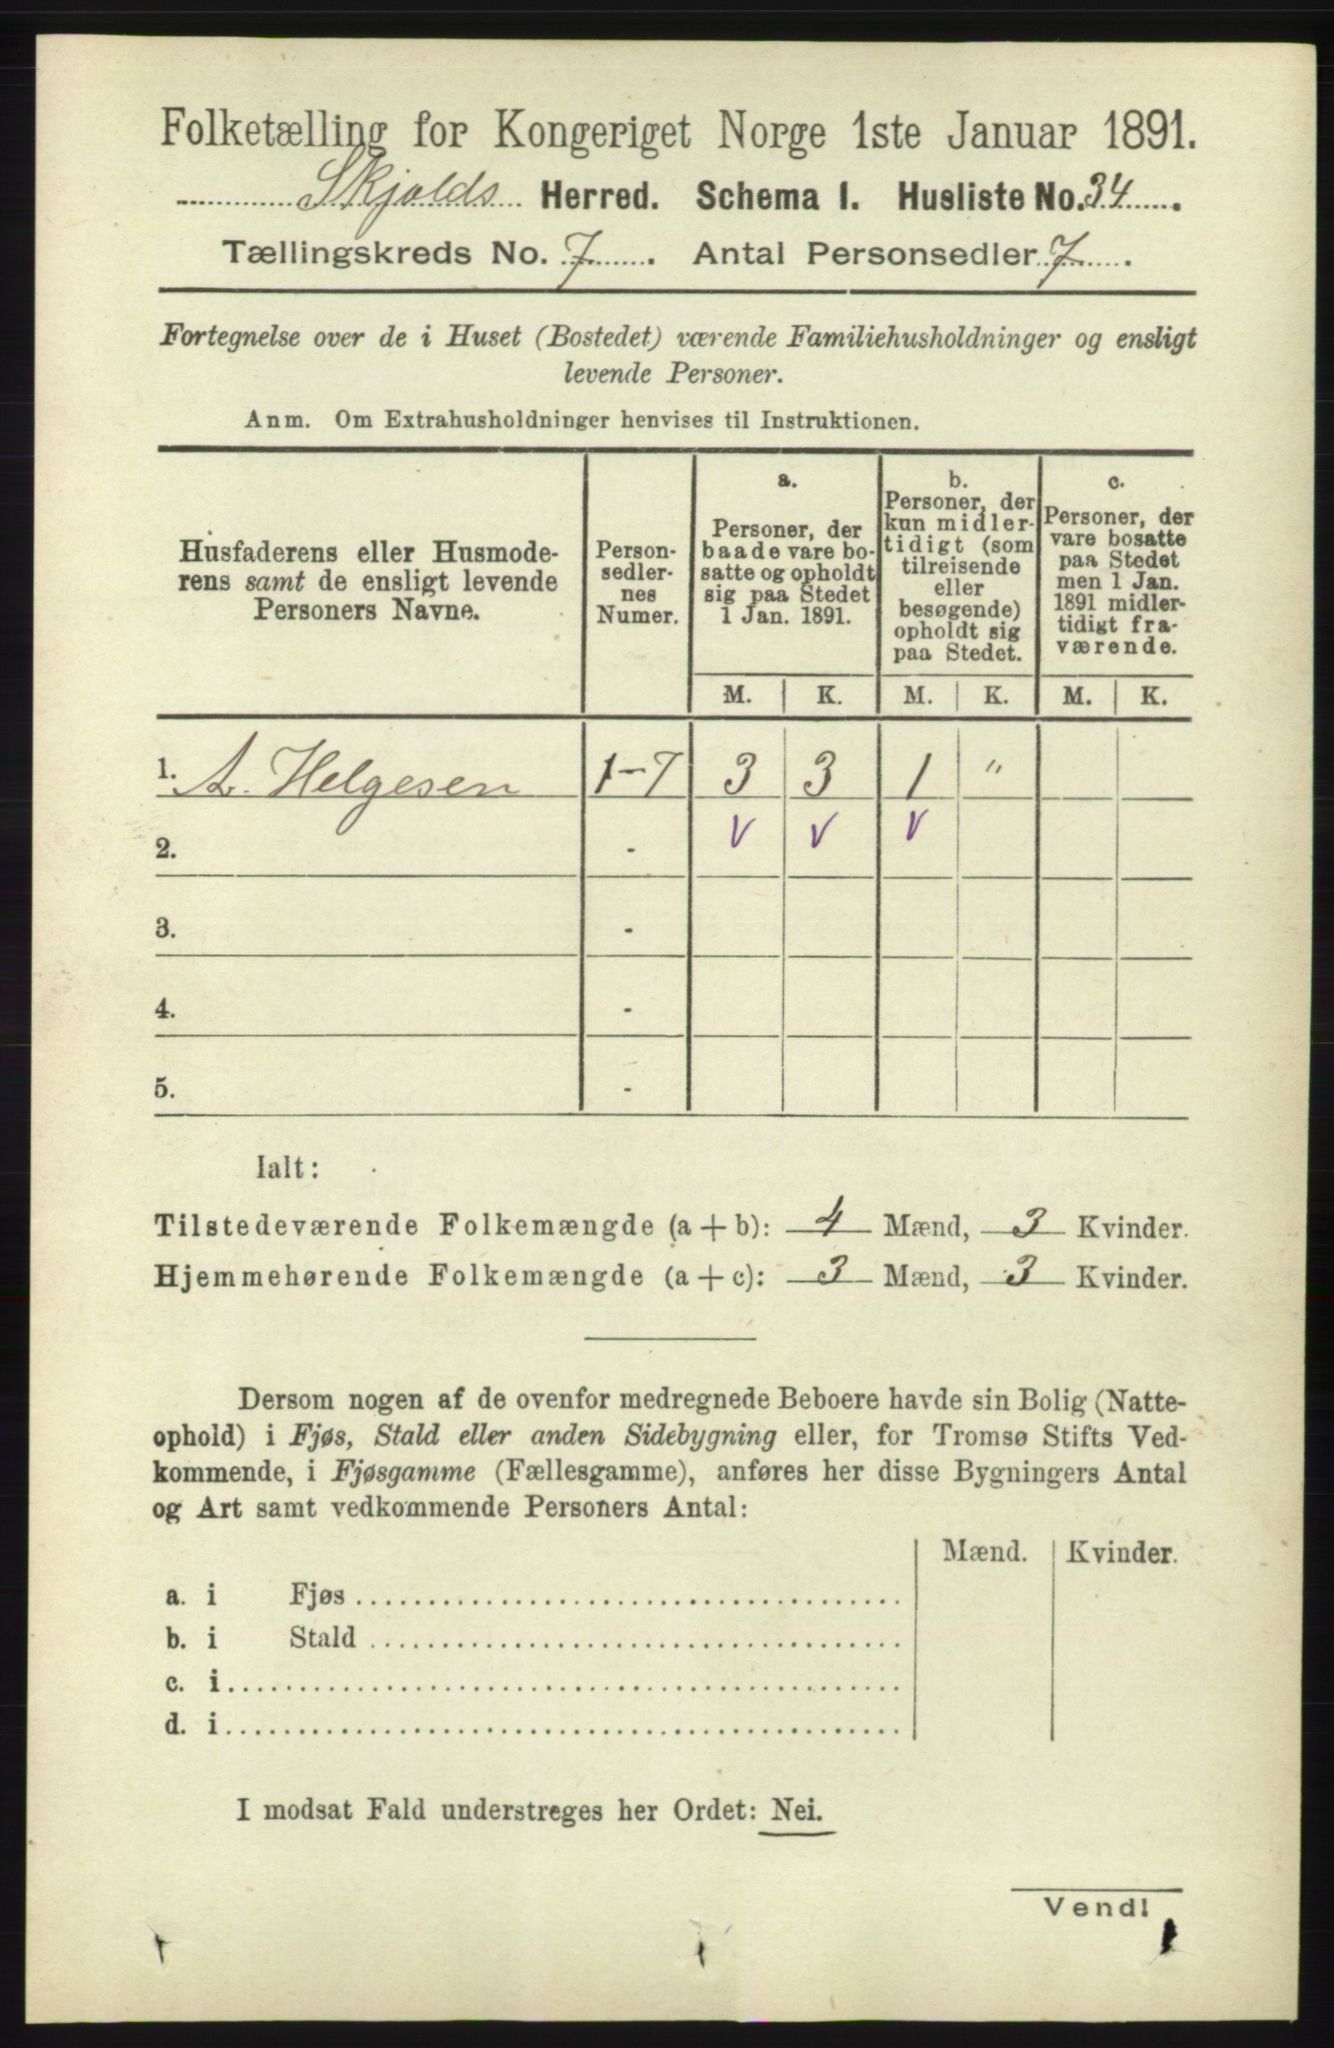 Folketælling for Kongeriget Norge 1ste Januar 1891.
Skjolds Herred. Schema I. Husliste No. 34
Tællingskreds No. 7. Antal Personsedler 7.
Fortegnelse over de i Huset (Bostedet) værende Familiehusholdninger og ensligt
levende Personer.
Anm. Om Extrahusholdninger henvises til Instruktionen.
Husfaderens eller Husmode-
rens samt de ensligt levende
Personers Navne.
Person-
sedler-
nes
Numer.
a.
Personer, der
baade vare bo-
satte og opholdt
sig paa Stedet
1 Jan. 1891.
b.
Personer, der
kun midler-
tidigt (som
tilreisende
eller
besøgende)
opholdt sig
paa Stedet.
c.
Personer, der
vare bosatte
paa Stedet
men 1 Jan.
1891 midler-
tidigt fra-
værende.
M. K. M. K. M. K.
1. A. Helgesen 1-7 3 3 1 "
2. - v v v
3. -
4. -
5. -
Ialt:
Tilstedeværende Folkemængde (a + b): 4 Mænd, 3 Kvinder.
Hjemmehørende Folkemængde (a + c): 3 Mænd, 3 Kvinder.
Dersom nogen af de ovenfor medregnede Beboere havde sin Bolig (Natte-
ophold) i Fjøs, Stald eller anden Sidebygning eller, for Tromsø Stifts Ved-
kommende, i Fjøsgamme (Fællesgamme), anføres her disse Bygningers Antal
og Art samt vedkommende Personers Antal:
Mænd. Kvinder.
a. i Fjøs
b. i Stald
c. i
d. i
I modsat Fald understreges her Ordet: Nei.
Vend!